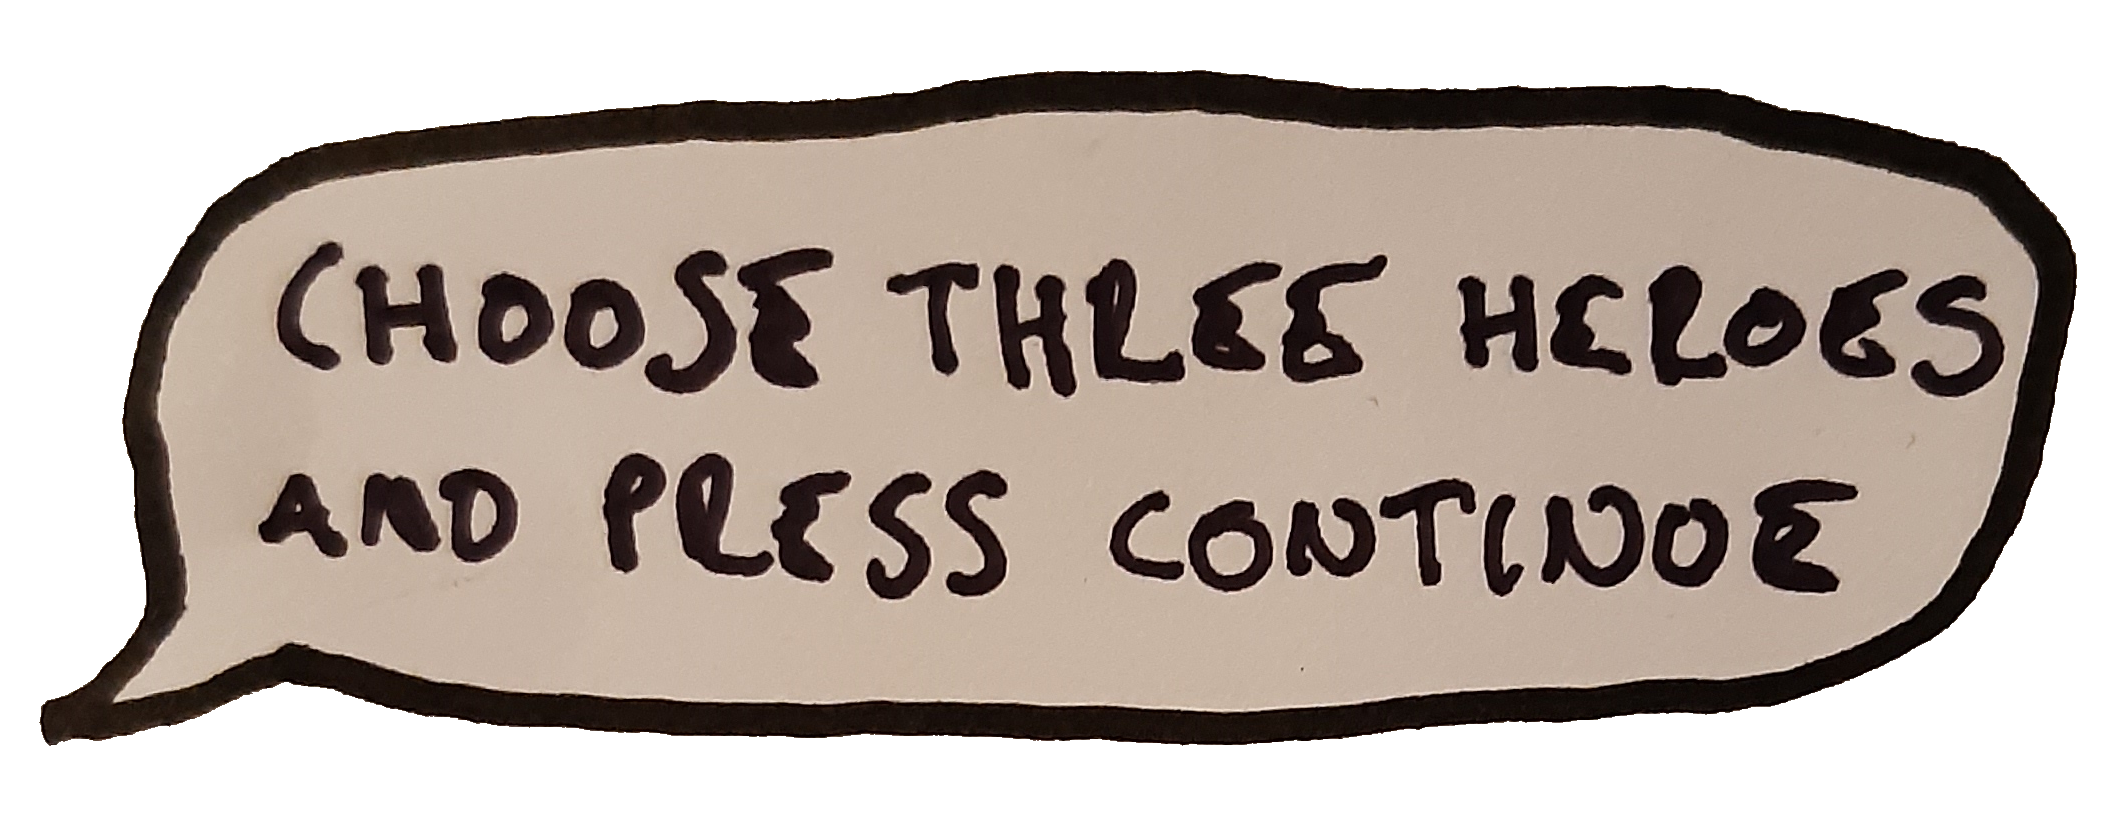 CHOOSE THREE HEROES
AND PRESS CONTINUE